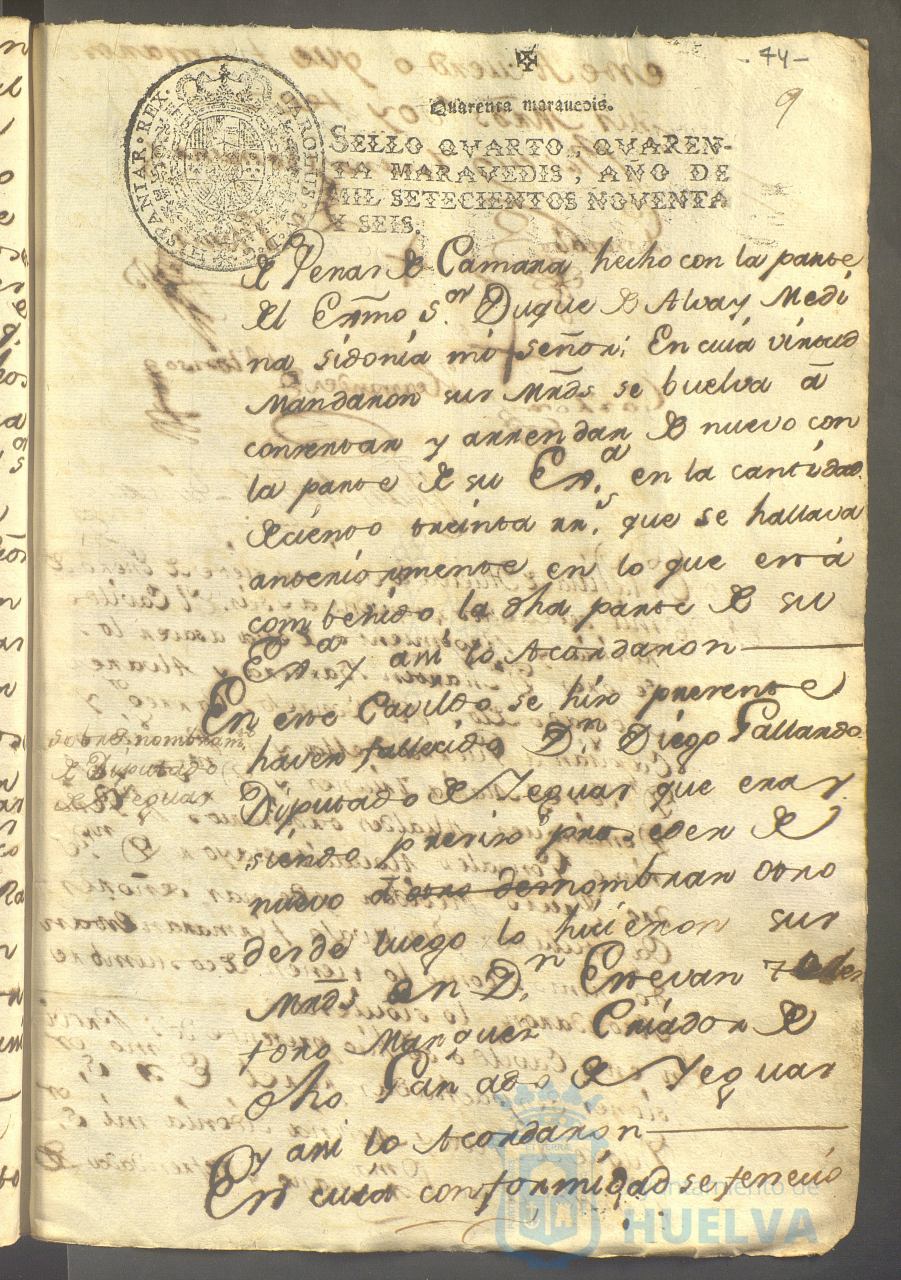 - 74 -
9
Quarenta maravedis.
SELLO QVARTO, QVAREN-
TA MARAVEDIS, AÑO DE
MIL SETECIENTOS NOVENTA
Y SEIS.
CAROLUS IV D G HISPANIAR REX
de Penas de Camara hecho con la parte
del Exmo Sor. Duque de Alva y Medi
na sidonia mi señor; En cuia virtud
Mandaron sus Mrds se buelva â
consertar y arrendar de nuevo con
la parte de su Exa. en la cantidad
de ciento treinta rrs. que se hallava
anteriormente en lo que está
combenido la dha parte de su
Exa. Y asi lo Acordaron
En este Cavildo se hizo presente
haver fallecido Dn Diego Gallardo
sobre nombram.to
de Diputado
de Yeguas
Diputado de Yeguas que era, y
siendo presiso proceder de
nuevo â nombrar otro
desde luego lo hicieron sus
Mrds en Dn. Estevan
toro Marquez Criador de
dho. Ganado de Yeguas
y asi lo Acordaron
En cuia conformidad se feneció
Ayuntamiento de
HUELVA